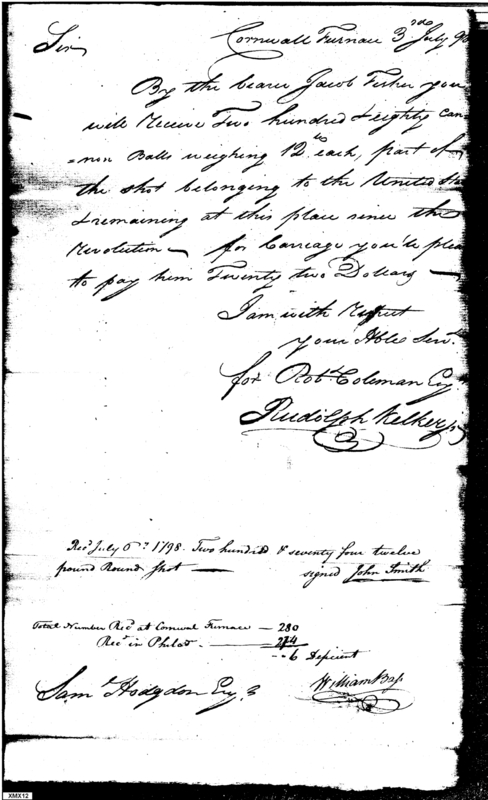 Cornwall Furnace 3rd July 98
Sir
By the bearer Jacob Fisher you
will Receive Two hundred & eighty can
=non Balls weighing 12 lb each, part of
the shot belonging to the United Sta
& remaining at this place since the
Revolution — for Carriage you'll plea
to pay him Twenty two Dollars —
I am with Respect
your Hble Servt.
for Robt. Coleman Esqr.
Rudolph Kelker jr
Recd. July 6th. 1798. Two hundred & seventy four twelve
pound Round Shot — signed John Smith
Total Number Recd. at Cornwal Furnace — 280
Recd. in Philada. — 274
-- 6 Deficient
Saml. Hodgdon Esqr.
William Bas
XMX12